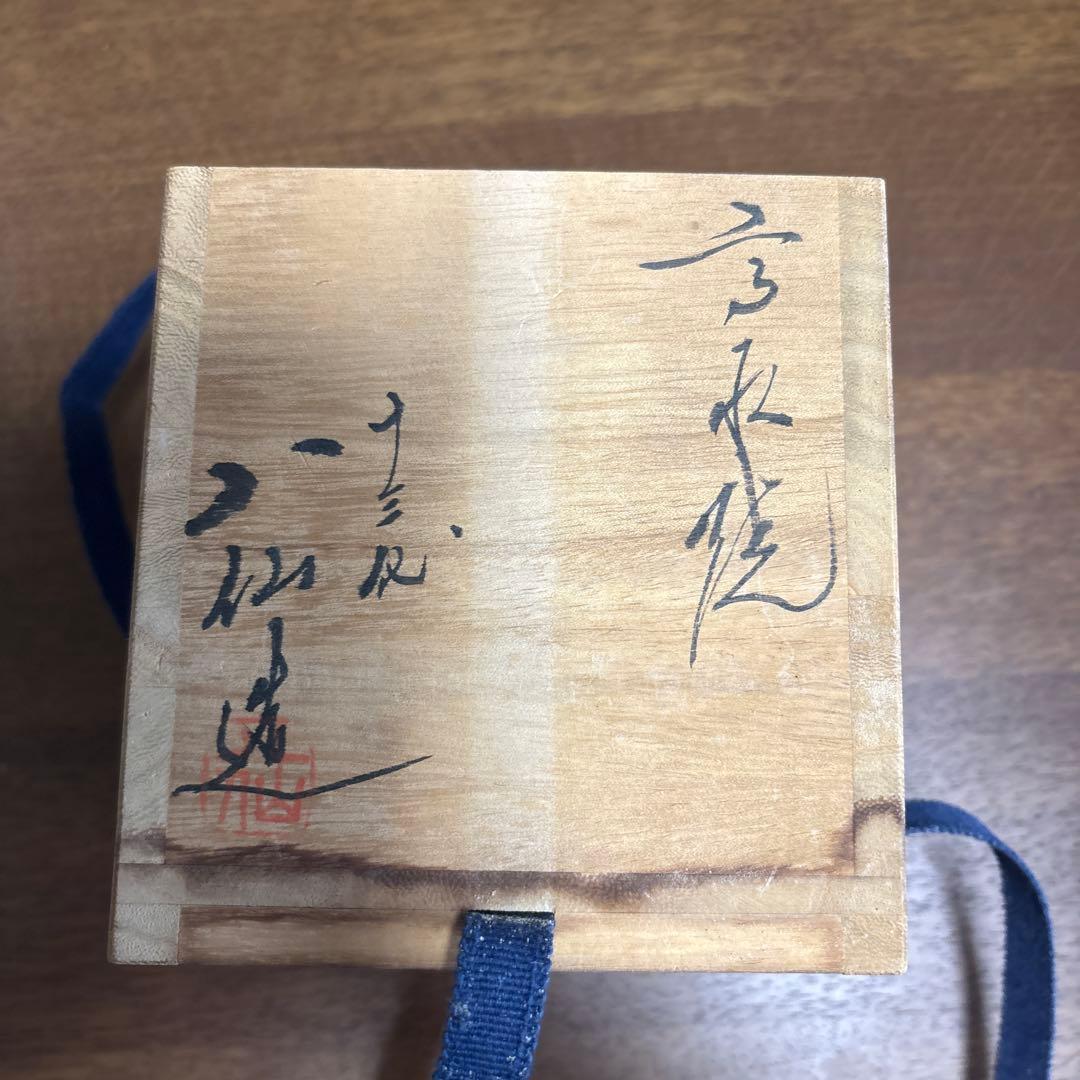 高取焼
十三代
八仙造